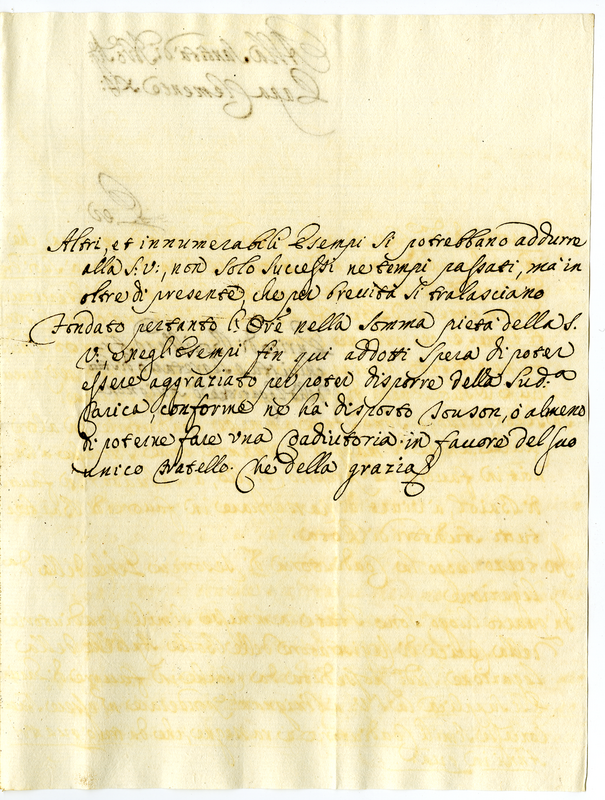 Altri, et innumerabili Esempi si potrebbano addurre
alla S: V:, non solo successi ne tempi passati, mà in
oltre di presente, che per brevità si tralasciano
Fondato pertanto l'Ore nella somma pietà della S.
V:, e negl'Esempi fin qui addotti spera di poter
essere aggraziato per poter disporre della Sud.a
Carica, conforme ne hà disposto Jouson, ò almeno
di poterne fare una Coadiutoria in favore del suo
unico Fratello. Che della grazia